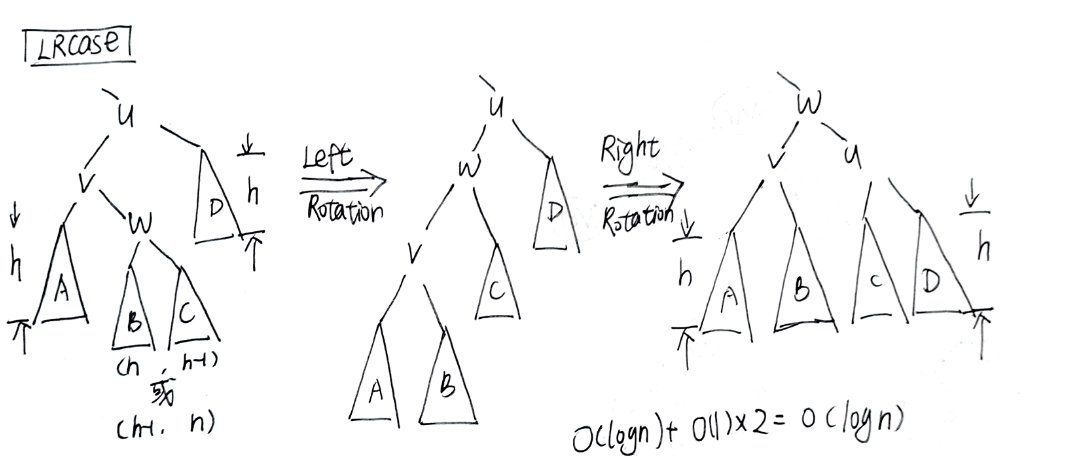 LRcase
U
V
W
A
B
C
D
h
h
(h , h-1)
或
(h-1, h)
Left
Rotation
U
W
V
D
C
A
B
Right
Rotation
W
V
U
A
B
C
D
h
h
O(logn)+ O(1)×2= O(logn)